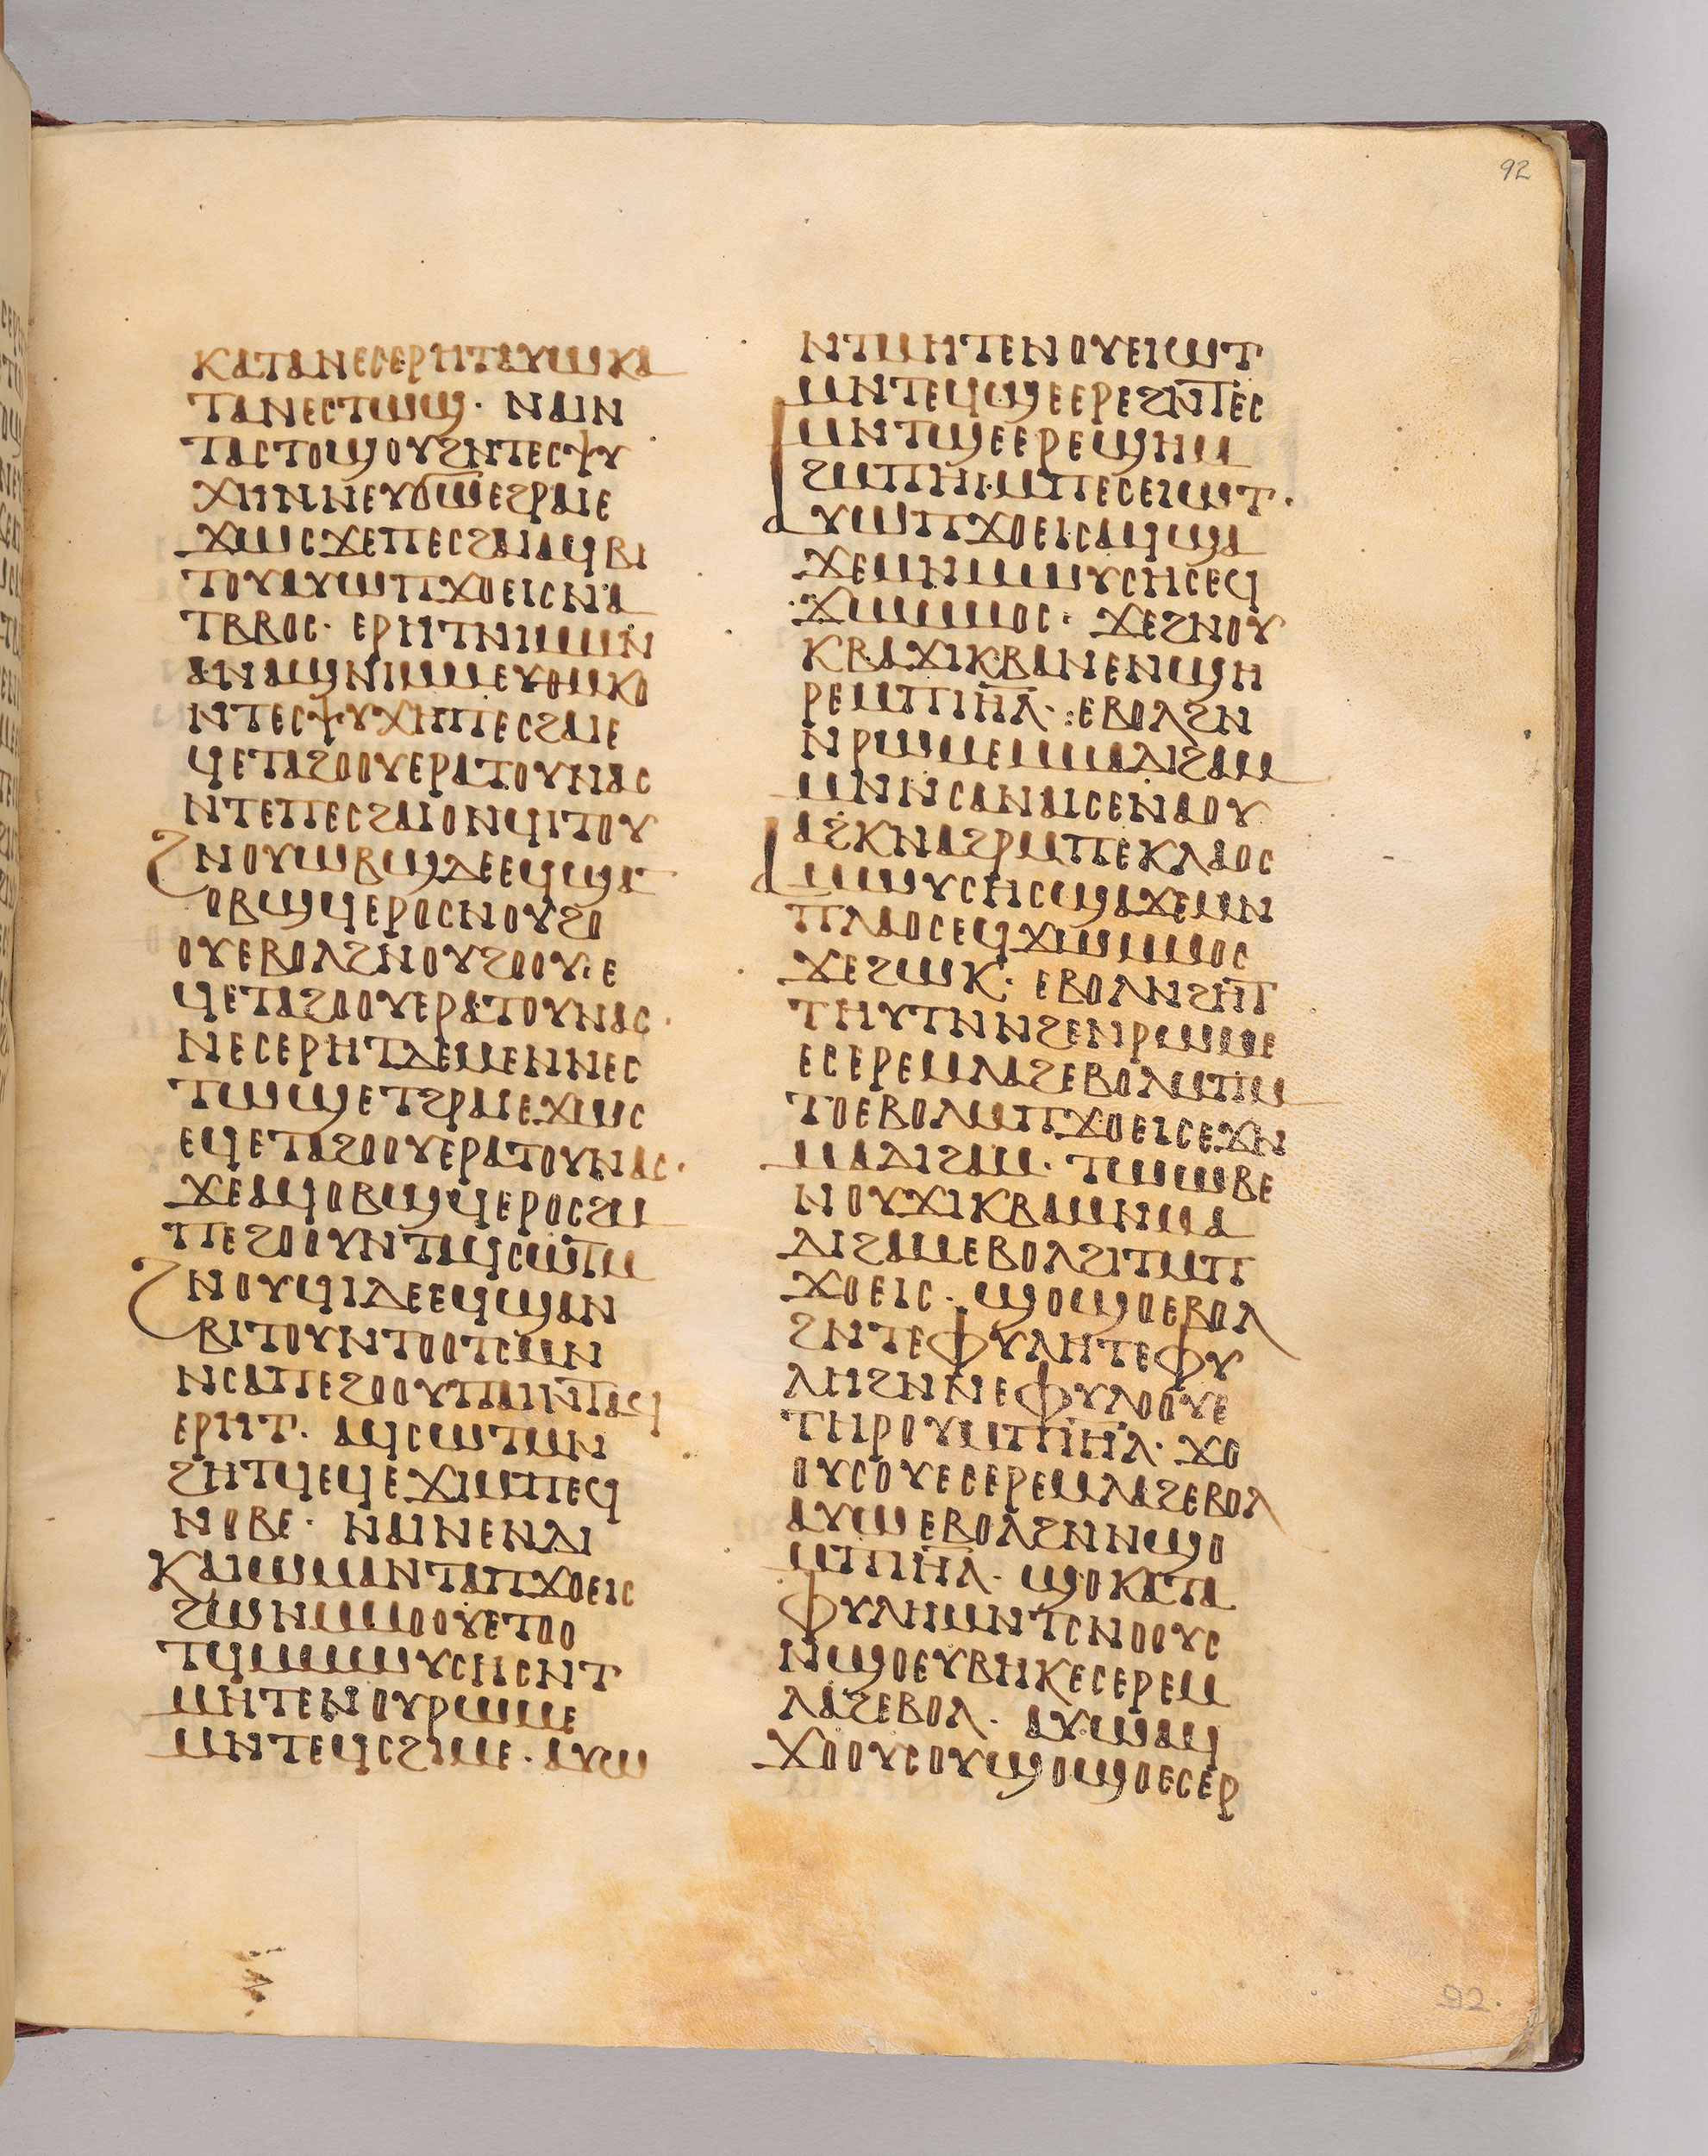 92
ⲕⲁⲧⲁⲛⲉⲥⲉⲣⲏⲧⲁⲩⲱⲕⲁ
ⲧⲁⲛⲉⲥⲧⲱϣ· ⲛⲁⲓⲛ
ⲧⲁⲥⲧⲟϣⲟⲩϩⲛⲧⲉⲥⲯⲩ
ⲭⲏⲛⲛⲉⲩϭⲱⲉϩⲣⲁⲓⲉ
ϫⲱⲥϫⲉⲡⲉⲥϩⲁⲓⲁϥⲃⲓ
ⲧⲟⲩⲁⲩⲱⲡϫⲟⲉⲓⲥⲛⲁ
ⲧⲃⲃⲟⲥ· ⲉⲣⲏⲧⲛⲓⲙⲙⲛ
ⲁⲛⲁϣⲛⲓⲙⲙⲉⲩⲑⲙⲕⲟ
ⲛⲧⲉⲥⲯⲩⲭⲏⲡⲉⲥϩⲁⲓⲉ
ϥⲉⲧⲁϩⲟⲟⲩⲉⲣⲁⲧⲟⲩⲛⲁⲥ
ⲛⲧⲉⲡⲉⲥϩⲁⲓⲟⲛϥⲓⲧⲟⲩ
ϩⲛⲟⲩⲱⲃϣⲇⲉⲉϥϣⲁ
ⲟⲃϣϥⲉⲣⲟⲥⲛⲟⲩϩⲟ
ⲟⲩⲉⲃⲟⲗϩⲛⲟⲩϩⲟⲟⲩ·ⲉ
ϥⲉⲧⲁϩⲟⲟⲩⲉⲣⲁⲧⲟⲩⲛⲁⲥ·
ⲛⲉⲥⲉⲣⲏⲧⲇⲉⲙⲉⲛⲛⲉⲥ
ⲧⲱϣⲉⲧϩⲣⲁⲓⲉϫⲱⲥ
ⲉϥⲉⲧⲁϩⲟⲟⲩⲉⲣⲁⲧⲟⲩⲛⲁⲥ·
ϫⲉⲁϥⲟⲃϣϥⲉⲣⲟⲥϩⲙ
ⲡⲉϩⲟⲟⲩⲛⲧⲁϥⲥⲱⲧⲙ
ϩⲛⲟⲩϥⲓⲇⲉⲉϥϣⲁⲛ
ⲃⲓⲧⲟⲩⲛⲧⲟⲟⲧⲥⲙⲛ
ⲛⲥⲁⲡⲉϩⲟⲟⲩⲡⲁⲓⲛⲧⲁϥ
ⲉⲣⲏⲧ· ⲁϥⲥⲱⲧⲙⲛ
ϩⲏⲧϥⲉϥⲉϫⲓⲙⲡⲉϥ
ⲛⲟⲃⲉ· ⲛⲁⲓⲛⲉⲛⲇⲓ
ⲕⲁⲓⲱⲙⲁⲛⲧⲁⲡϫⲟⲉⲓⲥ
ϩⲱⲛⲙⲙⲟⲟⲩⲉⲧⲟⲟ
ⲧϥⲙⲙⲱⲩⲥⲏⲥⲛⲧ
ⲙⲏⲧⲉⲛⲟⲩⲣⲱⲙⲉ
ⲙⲛⲧⲉϥⲥϩⲓⲙⲉ· ⲁⲩⲱ
ⲛⲧⲙⲏⲧⲉⲛⲟⲩⲉⲓⲱⲧ
ⲙⲛⲧⲉϥϣⲉⲉⲣⲉϩⲛⲧⲉⲥ
ⲙⲛⲧϣⲉⲉⲣⲉϣⲏⲙ
ϩⲙⲡⲏⲓⲙⲡⲉⲥⲉⲓⲱⲧ·
ⲁⲩⲱⲡϫⲟⲉⲓⲥⲁϥϣⲁ
ϫⲉⲙⲛⲙⲱⲩⲥⲏⲥⲉϥ
ϫⲱⲙⲙⲟⲥ· ϫⲉϩⲛⲟⲩ
ⲕⲃⲁϫⲓⲕⲃⲁⲛⲉⲛϣⲏ
ⲣⲉⲙⲡⲓⲏⲗ· ⲉⲃⲟⲗϩⲛ
ⲛⲣⲱⲙⲉⲙⲙⲁⲇⲓϩⲁⲙ
ⲙⲛⲛⲥⲁⲛⲁⲓⲥⲉⲛⲁⲟⲩ
ⲁϩⲕⲛⲁϩⲣⲙⲡⲉⲕⲗⲁⲟⲥ
ⲁⲙⲱⲩⲥⲏⲥϣⲁϫⲉⲙⲛ
ⲡⲗⲁⲟⲥⲉϥϫⲱⲙⲙⲟⲥ
ϫⲉϩⲱⲕ· ⲉⲃⲟⲗⲛϩⲏⲧ
ⲧⲏⲩⲧⲛⲛϩⲉⲛⲣⲱⲙⲉ
ⲉⲥⲉⲣⲉⲙⲗⲁϩⲉⲃⲟⲗⲙⲡⲙ
ⲧⲟⲉⲃⲟⲗⲙⲡϫⲟⲉⲓⲥⲉϫⲛ
ⲙⲁⲇⲓϩⲁⲙ· ⲧⲱⲱⲃⲉ
ⲛⲟⲩϫⲓⲕⲃⲁⲙⲙⲁ
ⲇⲓϩⲁⲙⲉⲃⲟⲗϩⲓⲧⲙⲡ
ϫⲟⲉⲓⲥ· ϣⲟϣⲟⲉⲃⲟⲗ
ϩⲛⲧⲉⲫⲩⲗⲏⲧⲉⲫⲩ
ⲗⲏϩⲛⲛⲉⲫⲩⲗⲟⲟⲩⲉ
ⲧⲏⲣⲟⲩⲙⲡⲓⲏⲗ· ϫⲟ
ⲟⲩⲥⲟⲩⲉⲥⲉⲣⲉⲙⲗⲁϩⲉⲃⲟⲗ
ⲁⲩⲱⲉⲃⲟⲗϩⲛⲛϣⲟ
ⲙⲡⲓⲏⲗ· ϣⲟⲕⲁⲧⲁ
ⲫⲩⲗⲏⲙⲛⲧⲥⲛⲟⲟⲩⲥ
ⲛϣⲟⲉⲩⲃⲏⲕⲉⲥⲉⲣⲉⲙ
ⲗⲁϩⲉⲃⲟⲗ· ⲁⲩⲱⲁϥ
ϫⲟⲟⲩⲥⲟⲩϣⲟϣⲟⲉⲥⲉⲣ
92.